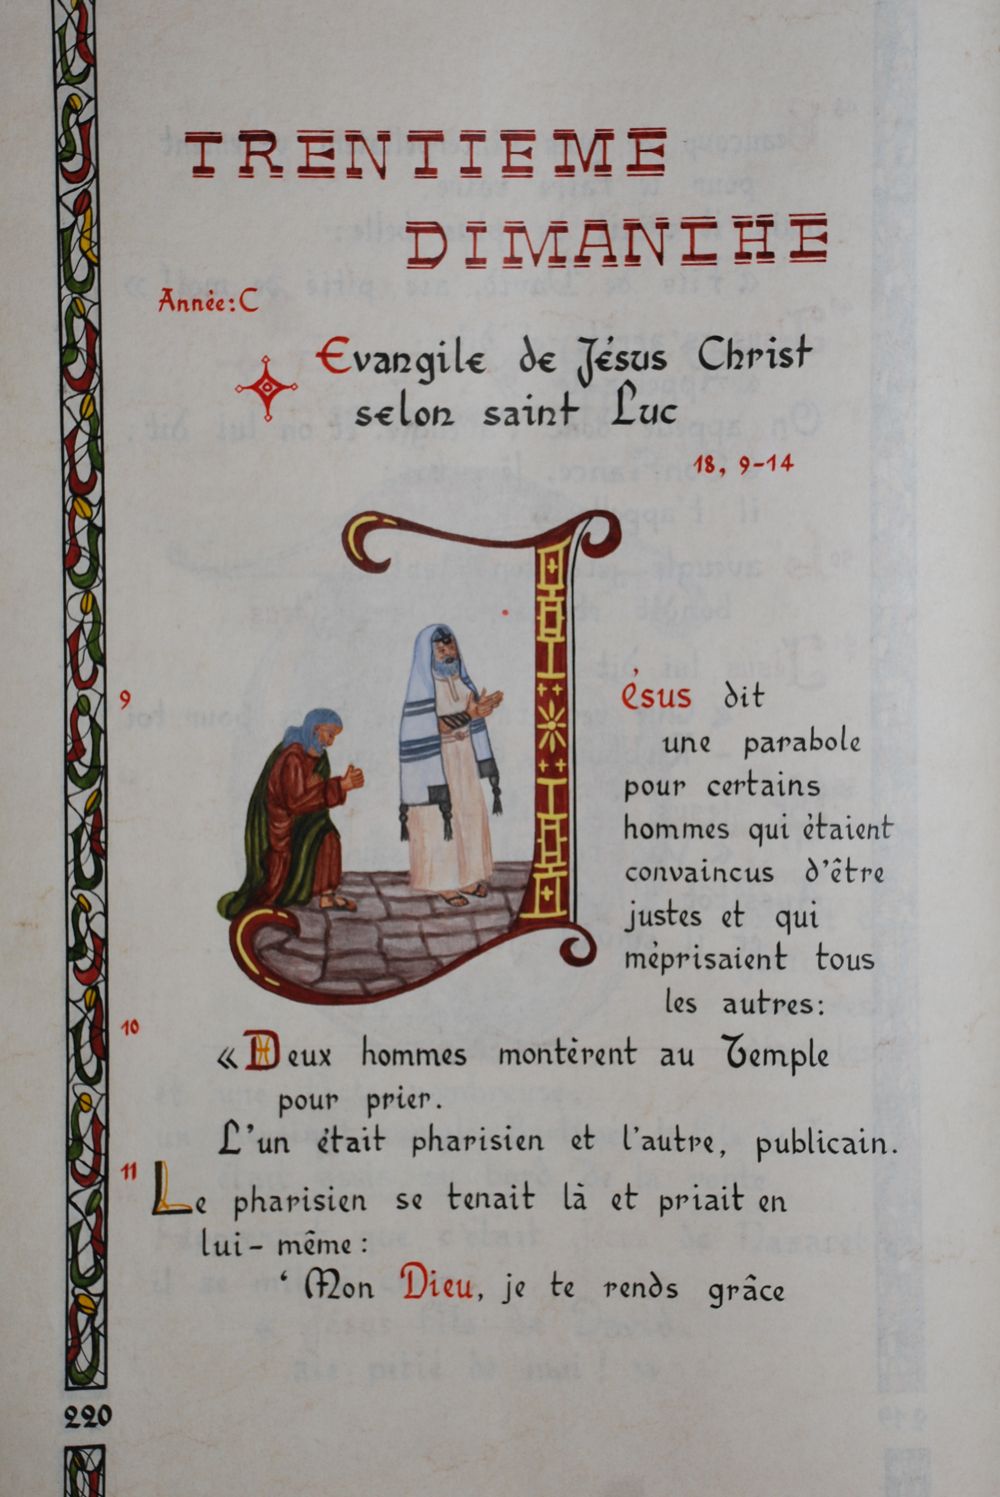 TRENTIEME
DIMANCHE
Année: C
Evangile de Jésus Christ
selon saint Luc
18, 9-14
9
Jésus dit
une parabole
pour certains
hommes qui étaient
convaincus d'être
justes et qui
méprisaient tous
les autres:
10
« Deux hommes montèrent au Temple
pour prier.
L'un était pharisien et l'autre, publicain.
11
Le pharisien se tenait là et priait en
lui-même:
‘Mon Dieu, je te rends grâce
220